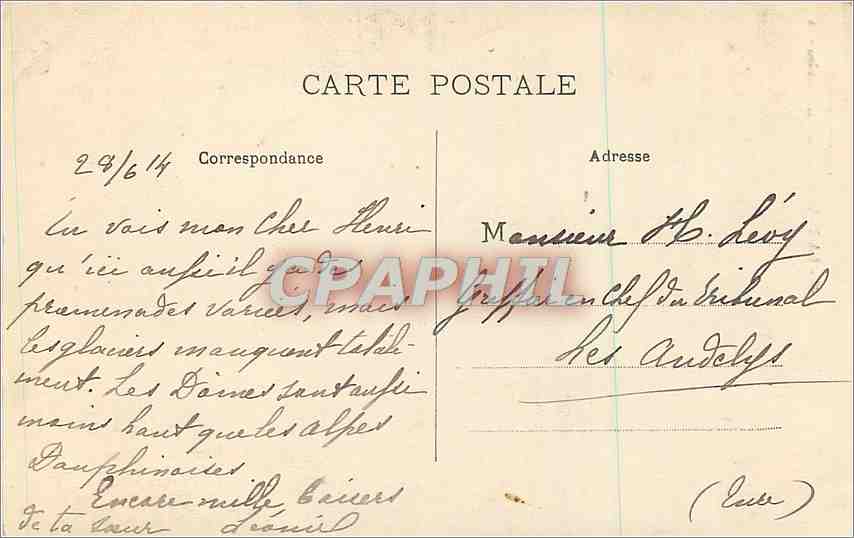 CARTE POSTALE
28/6 14
Correspondance
Tu vois mon cher Henri
qu'ici aussi il y a des
promenades variées, mais
les glaciers manquent totale-
ment. Les Dômes sont aussi
moins haut que les Alpes
Dauphinoises
Encore mille baisers
de ta sœur Léonie
Adresse
Monsieur H. Lévy
Greffier en chef du Tribunal
Les Andelys
(Eure)
CPAPHIL